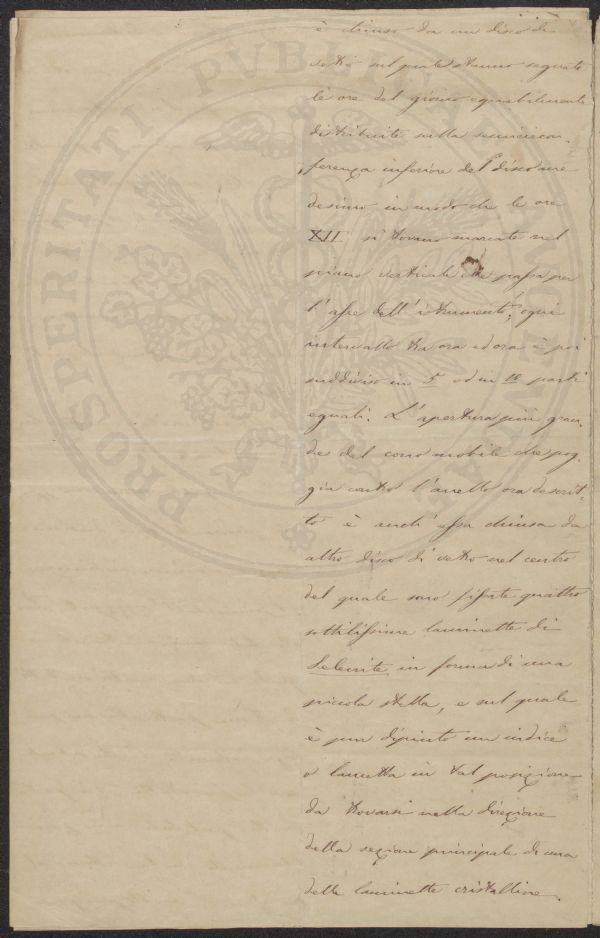 è chiuso da un disco di
vetro sul quale stanno segnate
le ore del giorno equabilmente
distribuite nella semicircon-
ferenza inferiore del disco me
desimo in modo che le ore
XII si trovano marcate nel
piano verticale che passa per
l'asse dell'istrumento; ogni
intervallo tra ora ed ora è poi
suddiviso in 5 od in 10 parti
eguali. L'apertura più gran-
de del cono mobile che pog-
gia contro l'anello ora descrit-
to è anch'essa chiusa da
altro disco di vetro nel centro
del quale sono fissate quattro
sottilissime laminette di
Selenite in forma di una
piccola stella, e sul quale
è pur dipinto un indice
o lancetta in tal posizione
da trovarsi nella direzione
della sezione principale di una
delle laminette cristalline.
PROSPERITATI PVBLICAE